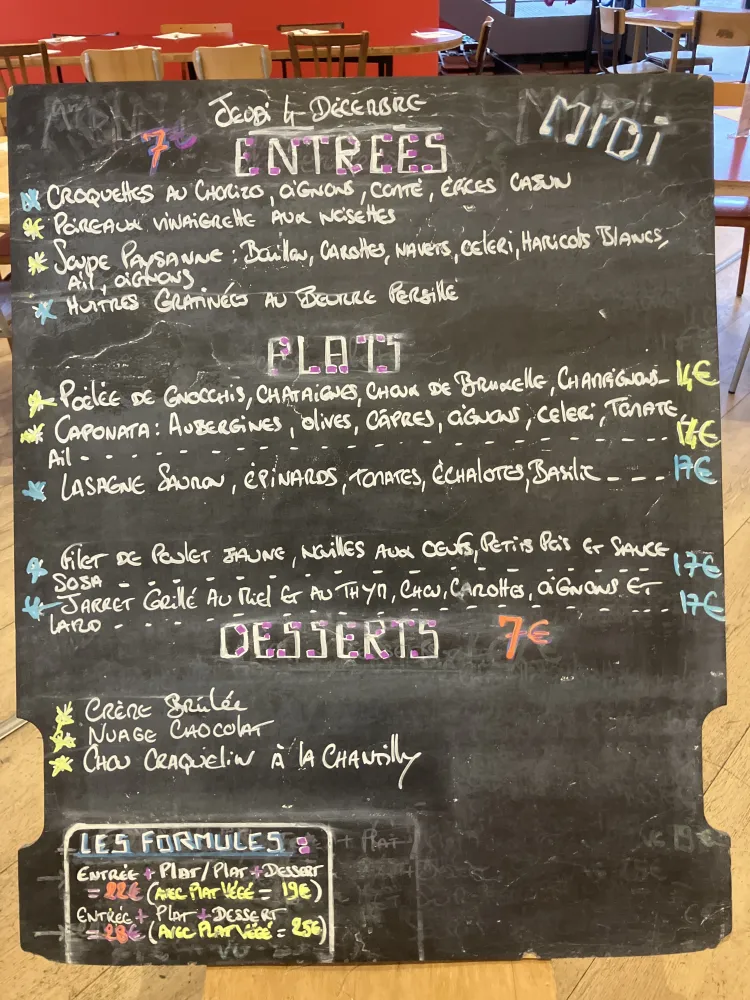 Jeudi 4 Décembre
MiDi
7€
ENTREES
Croquettes au Chorizo, oignons, comté, épices cajun
Poireaux vinaigrette aux noisettes
Soupe Paysanne : Bouillon, carottes, navets, celeri, Haricots Blancs,
Ail, oignons
Huitres Gratinées au Beurre Persillé
PLATS
Poêlée de Gnocchis, Chataignes, Choux de Bruxelle, Champignons- 14€
Caponata : Aubergines, olives, câpres, oignons, celeri, Tomate,
Ail - - - - - - - - - - - - - - - - - 14€
Lasagne Saumon, épinards, tomates, échalotes, Basilic - - - - 17€
Filet de Poulet Jaune, Nouilles aux oeufs, Petits Pois et Sauce
SOSA - - - - - - - - - - - - - - - - 17€
Jarret Grillé Au Miel et au Thym, Chou, Carottes, oignons et
Lard - - - - - - - - - - - - - - - - 17€
DESSERTS 7€
Crème Brûlée
Nuage Chocolat
Chou Craquelin à la Chantilly
LES FORMULES :
Entrée + Plat / Plat + Dessert
= 22€ (avec Plat végé = 19€)
Entrée + Plat + Dessert
= 28€ (avec Plat végé = 25€)